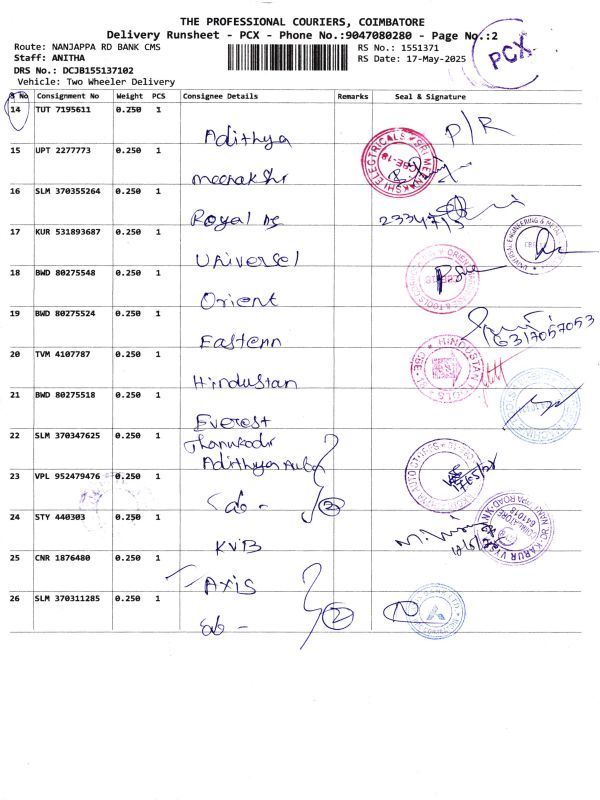 THE PROFESSIONAL COURIERS, COIMBATORE
Delivery Runsheet - PCX - Phone No.:9047080280 - Page No.:2
Route: NANJAPPA RD BANK CMS
RS No.: 1551371
Staff: ANITHA
RS Date: 17-May-2025
PCX
DRS No.: DCJB155137102
Vehicle: Two Wheeler Delivery
S No Consignment No Weight PCS Consignee Details Remarks Seal & Signature
14 TUT 7195611 0.250 1
Adithya P/R
15 UPT 2277773 0.250 1
meenakshi SRI MEENAKSHI ELECTRICALS CBE-18
16 SLM 370355264 0.250 1
Royal
17 KUR 531893687 0.250 1
Universel
18 BWD 80275548 0.250 1
Orient
19 BWD 80275524 0.250 1
Eastern 6317057053
20 TVM 4107787 0.250 1
Hindustan HINDUSTAN
21 BWD 80275518 0.250 1
Everest
22 SLM 370347625 0.250 1
Adithya Auto
23 VPL 952479476 0.250 1
do - 2
24 STY 440303 0.250 1
KVB KARUR
25 CNR 1876480 0.250 1
AXIS
26 SLM 370311285 0.250 1
do - 2